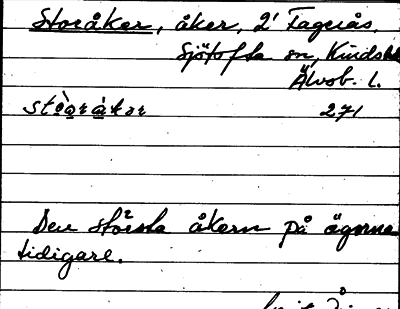 Storåker, åker, 2' Fagerås,
Sjötofta sn, Kinds
Älvsb. l.
271
Den största åkern på ägorna
tidigare.